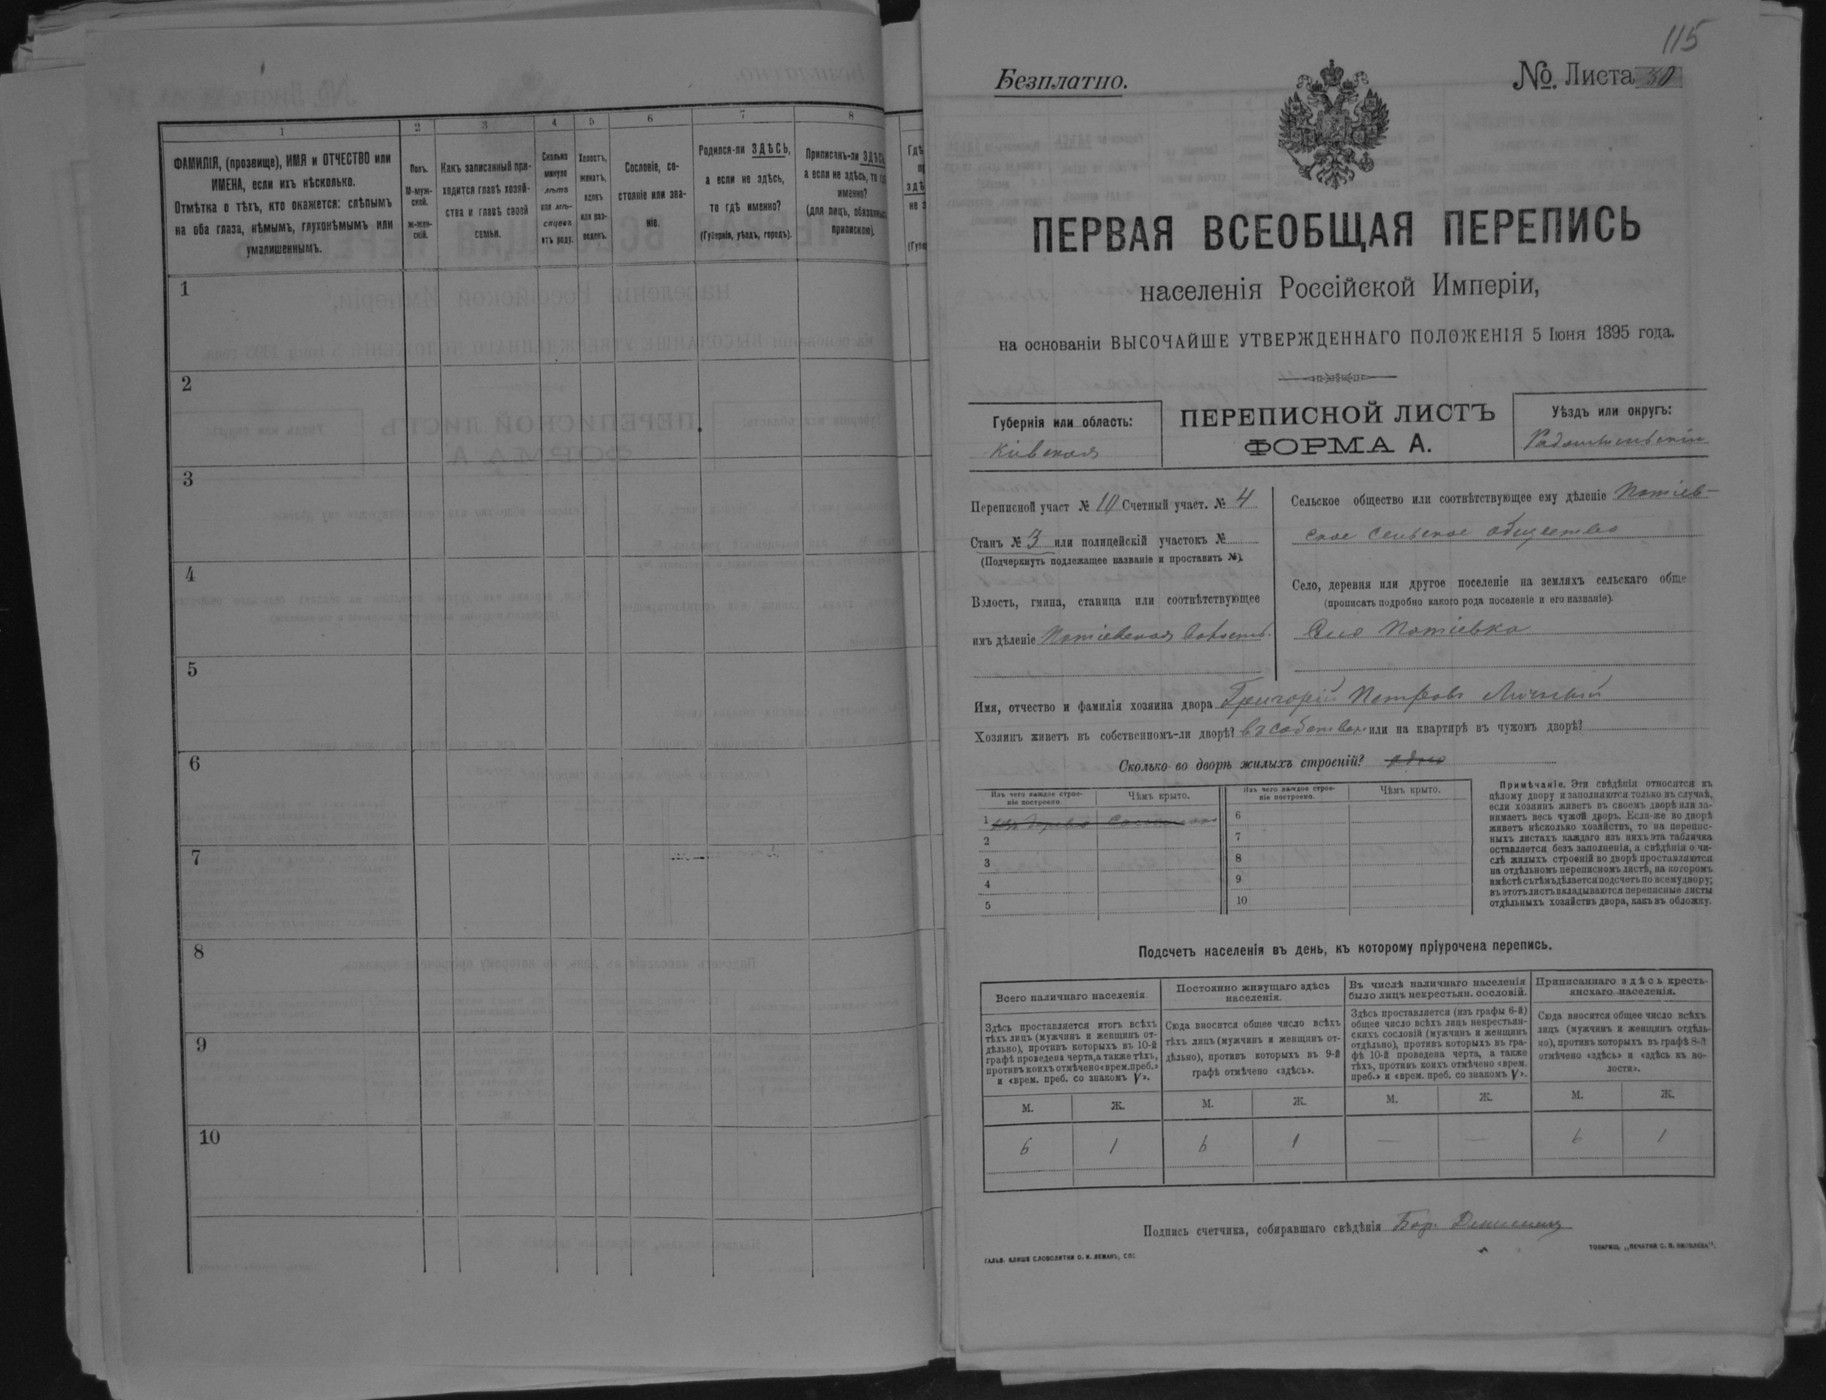 1
2
3
4
5
6
7
8
ФАМИЛІЯ, (прозвище), ИМЯ и ОТЧЕСТВО или
ИМЕНА, если ихъ нѣсколько.
Отмѣтка о тѣхъ, кто окажется: слѣпымъ
на оба глаза, нѣмымъ, глухонѣмымъ или
умалишеннымъ.
Полъ.
М-муж-
ской.
Ж-жен-
скій.
Какъ записанный при-
ходится главѣ хозяй-
ства и главѣ своей
семьи.
Сколько
минуло
лѣтъ
или мѣ-
сяцевъ
отъ роду.
Холостъ,
женатъ,
вдовъ
или раз-
веденъ.
Сословіе, со-
стояніе или зва-
ніе.
Родился-ли ЗДѢСЬ,
а если не здѣсь,
то гдѣ именно?
(Губернія, уѣздъ, городъ).
Приписанъ-ли ЗДѢСЬ,
а если не здѣсь, то гдѣ
именно?
(для лицъ, обязанныхъ
припискою).
1
2
3
4
5
6
7
8
9
10
115
Безплатно.
№ Листа 30
ПЕРВАЯ ВСЕОБЩАЯ ПЕРЕПИСЬ
населенія Россійской Имперіи,
на основаніи ВЫСОЧАЙШЕ УТВЕРЖДЕННАГО ПОЛОЖЕНІЯ 5 Іюня 1895 года.
Губернія или область:
Кіевская
ПЕРЕПИСНОЙ ЛИСТЪ
ФОРМА А.
Уѣздъ или округъ:
Радомысльскій
Переписной участ № 10 Счетный участ. № 4
Станъ № 3 или полицейскій участокъ №
(Подчеркнуть подлежащее названіе и проставить №).
Волость, гмина, станица или соотвѣтствующее
имъ дѣленіе Потіевская Волость.
Сельское общество или соотвѣтствующее ему дѣленіе Потіев-
ское сельское общество
Село, деревня или другое поселеніе на земляхъ сельскаго обще
(прописать подробно какого рода поселеніе и его названіе).
Село Потіевка
Имя, отчество и фамилія хозяина двора Григорій Петровъ
Хозяинъ живетъ въ собственномъ-ли дворѣ? въ собствен. или на квартирѣ въ чужомъ дворѣ?
Сколько во дворѣ жилыхъ строеній? одно
Изъ чего каждое строе-
ніе построено.
Чѣмъ крыто.
Изъ чего каждое строе-
ніе построено.
Чѣмъ крыто.
1 изъ дерева соломою
2
3
4
5
6
7
8
9
10
Примѣчаніе. Эти свѣдѣнія относятся къ
цѣлому двору и заполняются только въ случаѣ,
если хозяинъ живетъ въ своемъ дворѣ или за-
нимаетъ весь чужой дворъ. Если-же во дворѣ
живетъ нѣсколько хозяйствъ, то на перепис-
ныхъ листахъ каждаго изъ нихъ эта табличка
оставляется безъ заполненія, а свѣдѣнія о чи-
слѣ жилыхъ строеній во дворѣ проставляются
на отдѣльномъ переписномъ листѣ, на которомъ
вмѣстѣ съ тѣмъ дѣлается подсчетъ по всему двору;
въ этотъ листъ вкладываются переписные листы
отдѣльныхъ хозяйствъ двора, какъ въ обложку.
Подсчетъ населенія въ день, къ которому пріурочена перепись.
Всего наличнаго населенія
Постоянно живущаго здѣсь
населенія.
Въ числѣ наличнаго населенія
было лицъ некрестьян. сословій.
Приписаннаго здѣсь кресть-
янскаго населенія.
Здѣсь проставляется итогъ всѣхъ
тѣхъ лицъ (мужчинъ и женщинъ от-
дѣльно), противъ которыхъ въ 10-й
графѣ проведена черта, а также тѣхъ,
противъ коихъ отмѣчено «врем. преб.»
и «врем. преб. со знакомъ V».
Сюда вносится общее число всѣхъ
тѣхъ лицъ (мужчинъ и женщинъ от-
дѣльно), противъ которыхъ въ 9-й
графѣ отмѣчено «здѣсь».
Здѣсь проставляется (изъ графы 6-й)
общее число всѣхъ лицъ некрестьян-
скихъ сословій (мужчинъ и женщинъ
отдѣльно), противъ которыхъ въ гра-
фѣ 10-й проведена черта, а также
тѣхъ, противъ коихъ отмѣчено «врем.
преб.» и «врем. преб. со знакомъ V».
Сюда вносится общее число всѣхъ
лицъ (мужчинъ и женщинъ отдѣль-
но), противъ которыхъ въ графѣ 8-й
отмѣчено «здѣсь» и «здѣсь къ во-
лости».
М. Ж. М. Ж. М. Ж. М. Ж.
6 1 6 1 — — 6 1
Подпись счетчика, собиравшаго свѣдѣнія
ГАЛЬВ. КЛИШЕ СЛОВОЛИТНИ О. И. ЛЕМАНЪ, СПБ.
ТОВАРИЩ. „ПЕЧАТНЯ С. П. ЯКОВЛЕВА".